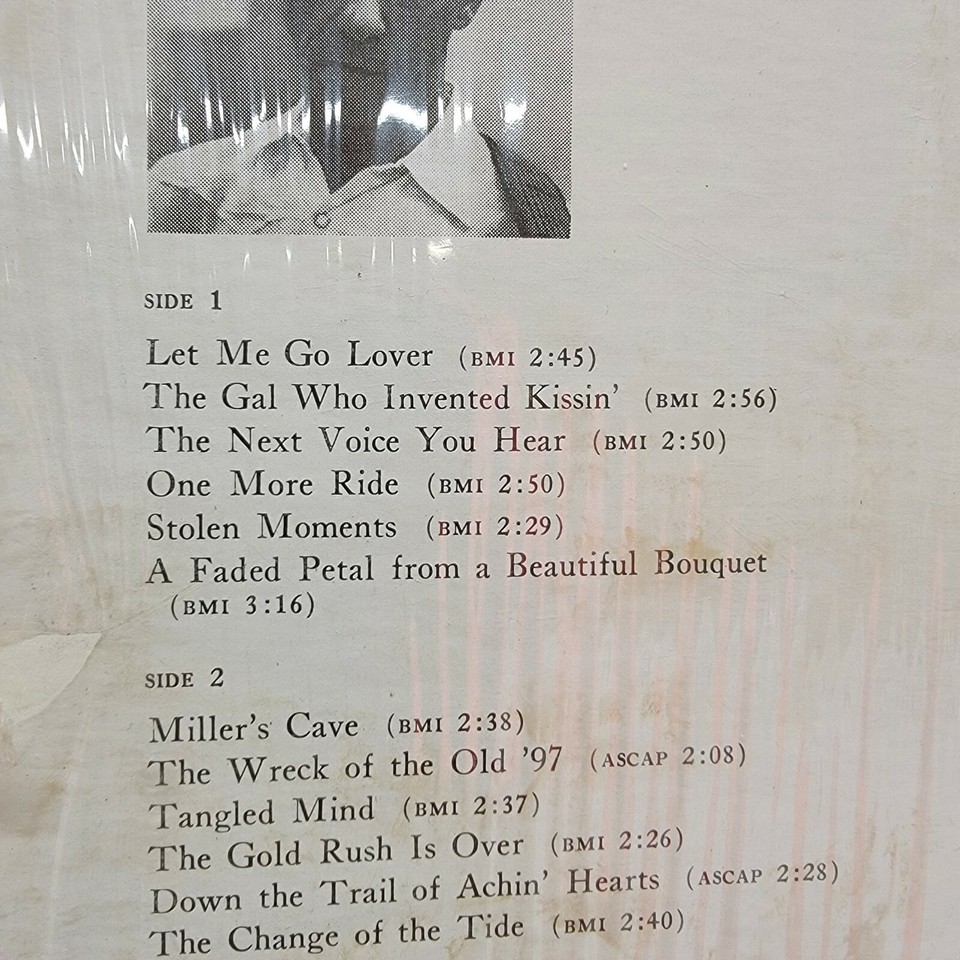 SIDE 1
Let Me Go Lover (BMI 2:45)
The Gal Who Invented Kissin' (BMI 2:56)
The Next Voice You Hear (BMI 2:50)
One More Ride (BMI 2:50)
Stolen Moments (BMI 2:29)
A Faded Petal from a Beautiful Bouquet
(BMI 3:16)
SIDE 2
Miller's Cave (BMI 2:38)
The Wreck of the Old '97 (ASCAP 2:08)
Tangled Mind (BMI 2:37)
The Gold Rush Is Over (BMI 2:26)
Down the Trail of Achin' Hearts (ASCAP 2:28)
The Change of the Tide (BMI 2:40)